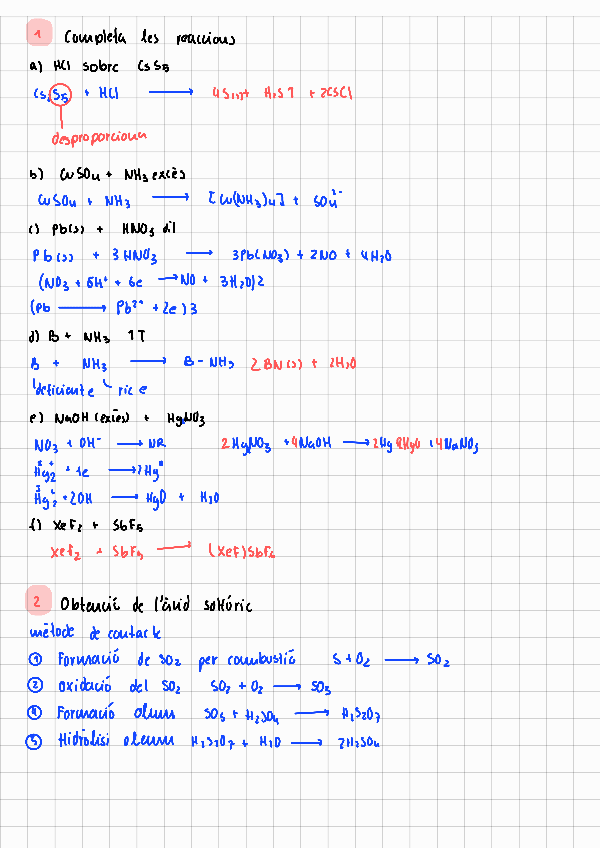 1 Completa les reaccions
a) HCl sobre Cs2S5
Cs2S5 + HCl ⟶ 4S(s)+ H2S↑ + 2CsCl
desproporciona
b) CuSO4 + NH3 excès
CuSO4 + NH3 ⟶ [Cu(NH3)4] + SO4²⁻
c) Pb(s) + HNO3 dil
Pb(s) + 3HNO3 ⟶ 3Pb(NO3) + 2NO + 4H2O
(NO3 + 6H⁺ + 6e ⟶ NO + 3H2O)2
(Pb ⟶ Pb²⁺ + 2e)3
d) B + NH3 ↑T
B + NH3 ⟶ B-NH3 2BN(s) + 2H2O
deficient e ric e
e) NaOH (excés) + HgNO3
NO3 + OH⁻ ⟶ NR 2HgNO3 + 4NaOH ⟶ 2Hg 2HgO + 4NaNO3
Hg2 + 1e ⟶ 2Hg⁰
Hg2 + 2OH ⟶ HgO + H2O
f) XeF2 + SbF5
XeF2 + SbF5 ⟶ (XeF)SbF6
2 Obtenció de l'àcid sulfúric
mètode de contacte
① Formació de SO2 per combustió S + O2 ⟶ SO2
② oxidació del SO2 SO2 + O2 ⟶ SO3
④ Formació oleum SO3 + H2SO4 ⟶ H2S2O7
⑤ Hidròlisi oleum H2S2O7 + H2O ⟶ 2H2SO4